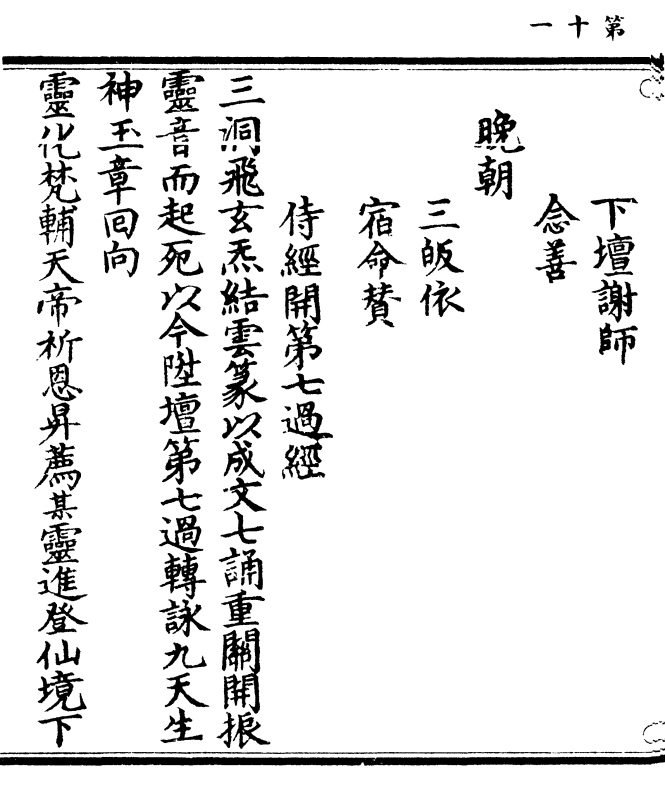 第十一
下壇謝師
念善
晚朝
三皈依
宿命贊
侍經開第七過經
三洞飛玄炁結雲篆以成文七誦重關開振
靈音而起死以今陞壇第七過轉詠九天生
神玉章回向
靈化梵輔天帝祈恩昇薦某靈進登仙境下